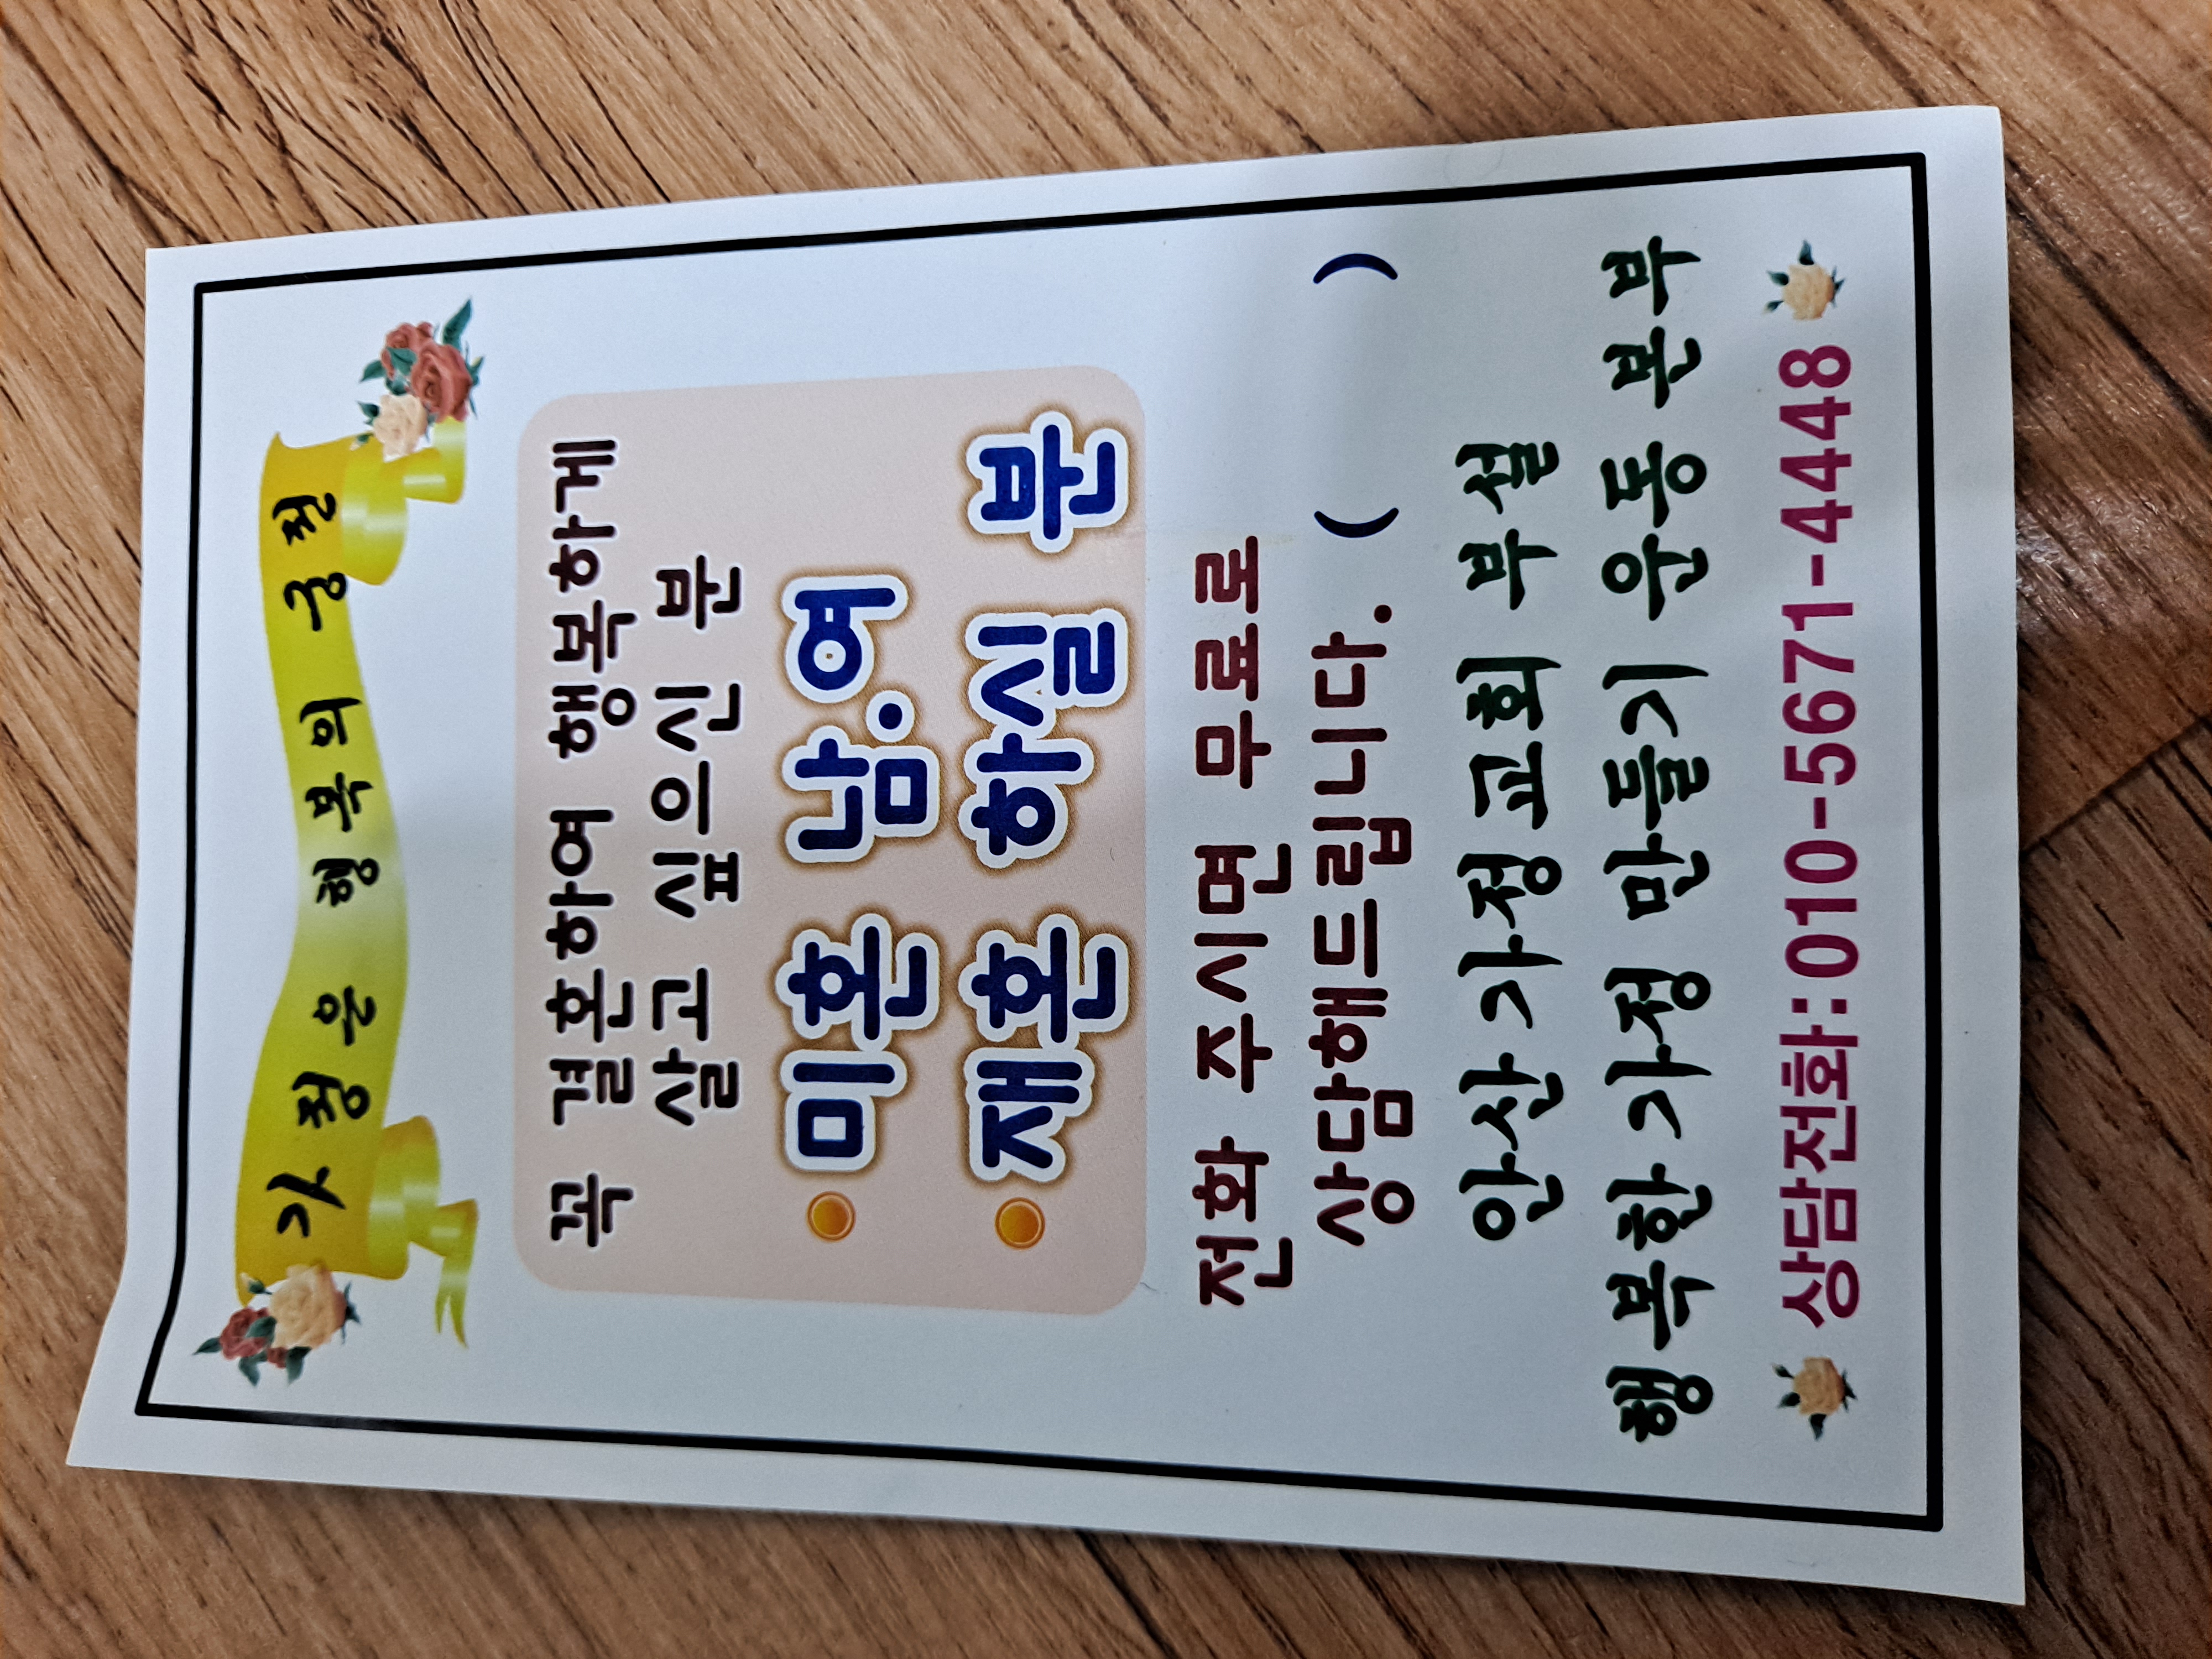 가정은 행복의 궁전
꼭 결혼하여 행복하게
살고 싶으신 분
미혼 남.여
재혼 하실 분
전화 주시면 무료로
상담해드립니다. ( )
안산 가정교회 부설
행복한 가정 만들기 운동 본부
상담전화:010-5671-4448